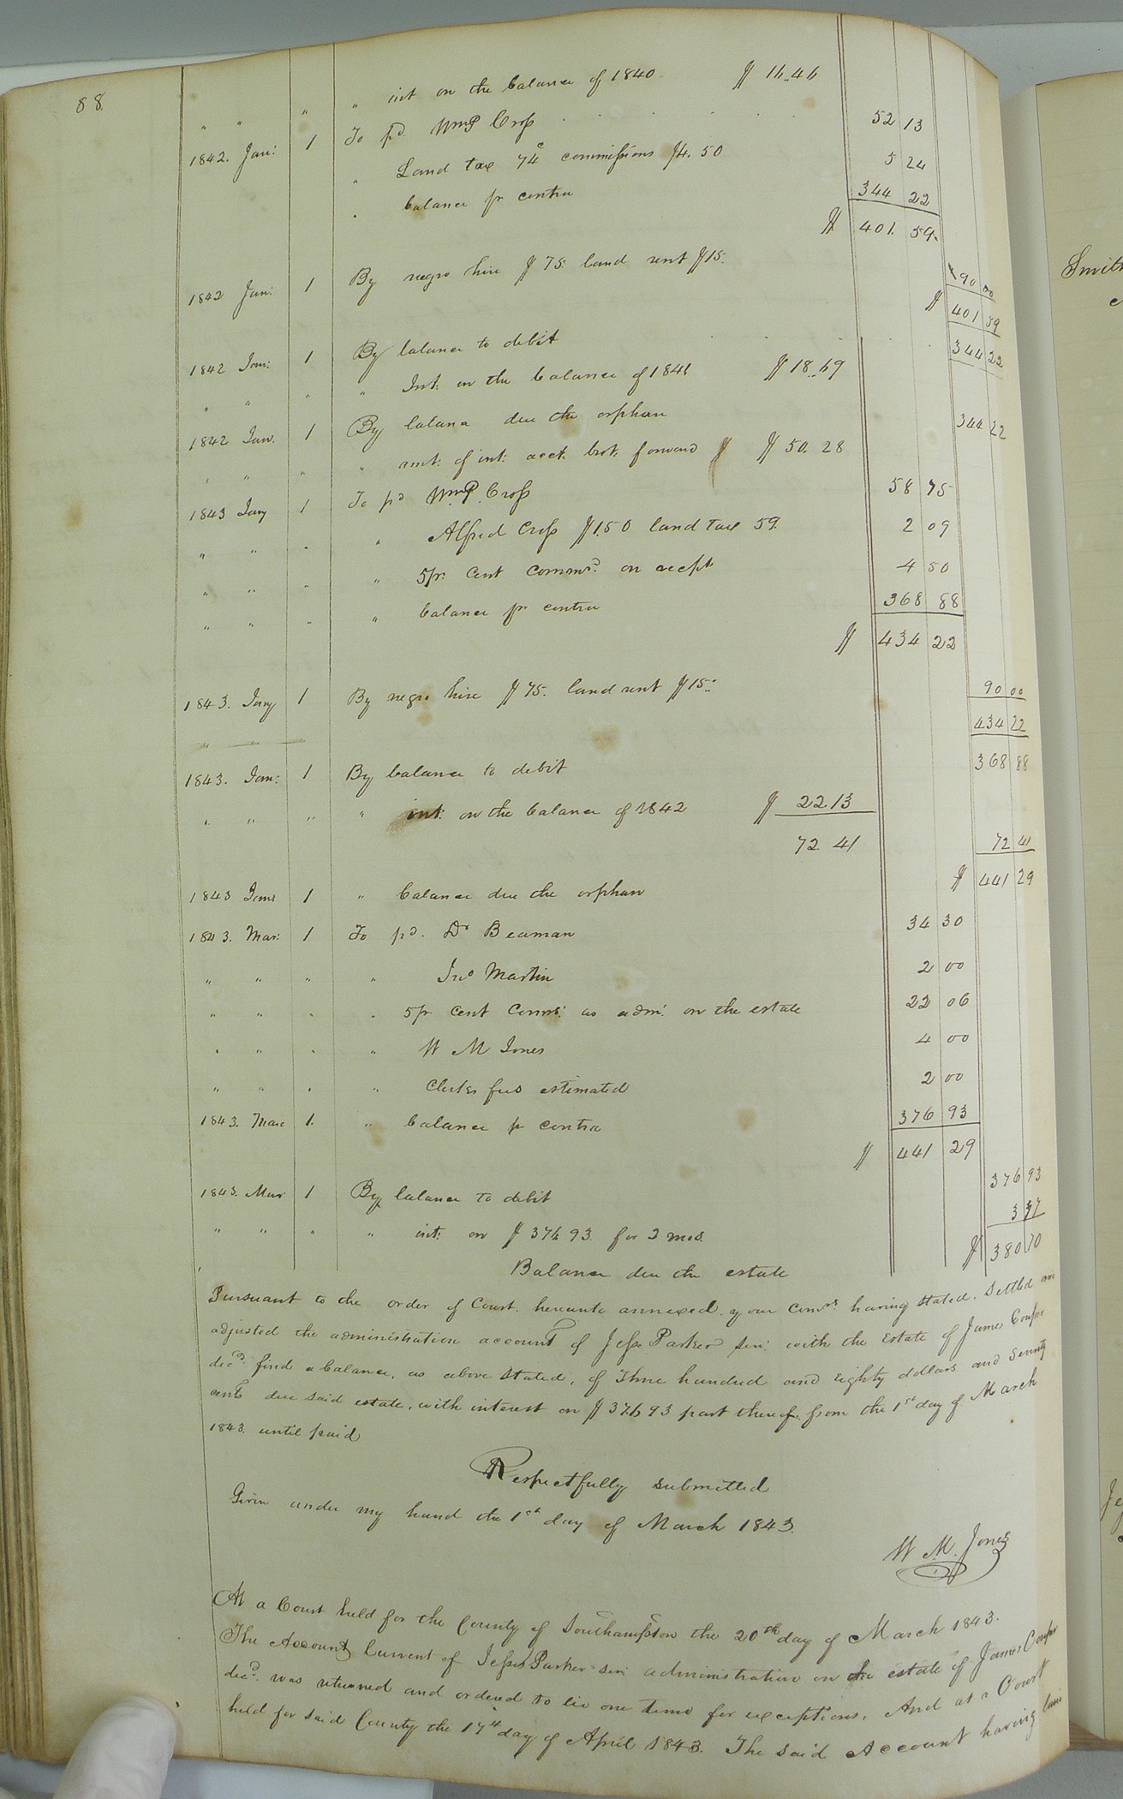 88
" " " " int on the balance of 1840 $ 16.46
1842. Jan: 1 To pd Wm P Cross 52 13
" Land tax 74c commissions $4.50 5 24
" balance pr contra 344 22
$ 401. 59.
1842 Jan: 1 By negro hire $75. land rent $15. 90 00
$ 401 59
1842 Jan: 1 By balance to debit 344 22
" " " " Int. on the balance of 1841 $18.69
1842 Jan. 1 By balance due the orphan 344 22
" " " " amt. of int. acct. brot. forward $ 50.28
1843 Jany 1 To pd Wm P. Cross 58 75
" " " " Alfred Cross $1.50 land tax 59. 2 09
" " " " 5 pr. Cent Comms. on rcept 4 50
" " " " balance pr contra 368 88
$ 434 22
1843. Jany 1 By negro hire $75. land rent $15. 90 00
434 22
1843. Jan: 1 By balance to debit 368 88
" " " " int: on the balance of 1842 $ 22 13
72 41 72 41
$ 441 29
1843 Jany 1 " balance due the orphan
1843. Mar: 1 To pd. Dr Beaman 34 30
" " " " Jno Martin 2 00
" " " " 5 pr Cent Comms: as adm: on the estate 22 06
" " " " W M Jones 4 00
" " " " Clerks fees estimated 2 00
1843. Mar 1. " balance pr contra 376 93
$ 441 29
1843. Mar 1 By balance to debit 376 93
" " " " int: on $376 93. for 2 mos. 3 77
Balance due the estate $ 380 70
Pursuant to the order of Court hereunto annexed your Comrs. having stated. Settled and
adjusted the administration account of Jesse Parker Sen: with the Estate of James
decd. find a balance, as above stated, of Three hundred and eighty dollars and seventy
cents due said estate, with interest on $376 93 part thereof from the 1st day of March
1843 until paid
Respectfully submitted
Given under my hand the 1st day of March 1843.
W M. Jones
At a Court held for the County of Southampton the 20th day of March 1843.
The Account Current of Jesse Parker Sen administration on the estate of James
decd. was returned and ordered to lie one time for exceptions. And at a Court
held for said County the 17th day of April 1843. The said Account having lain
Smith